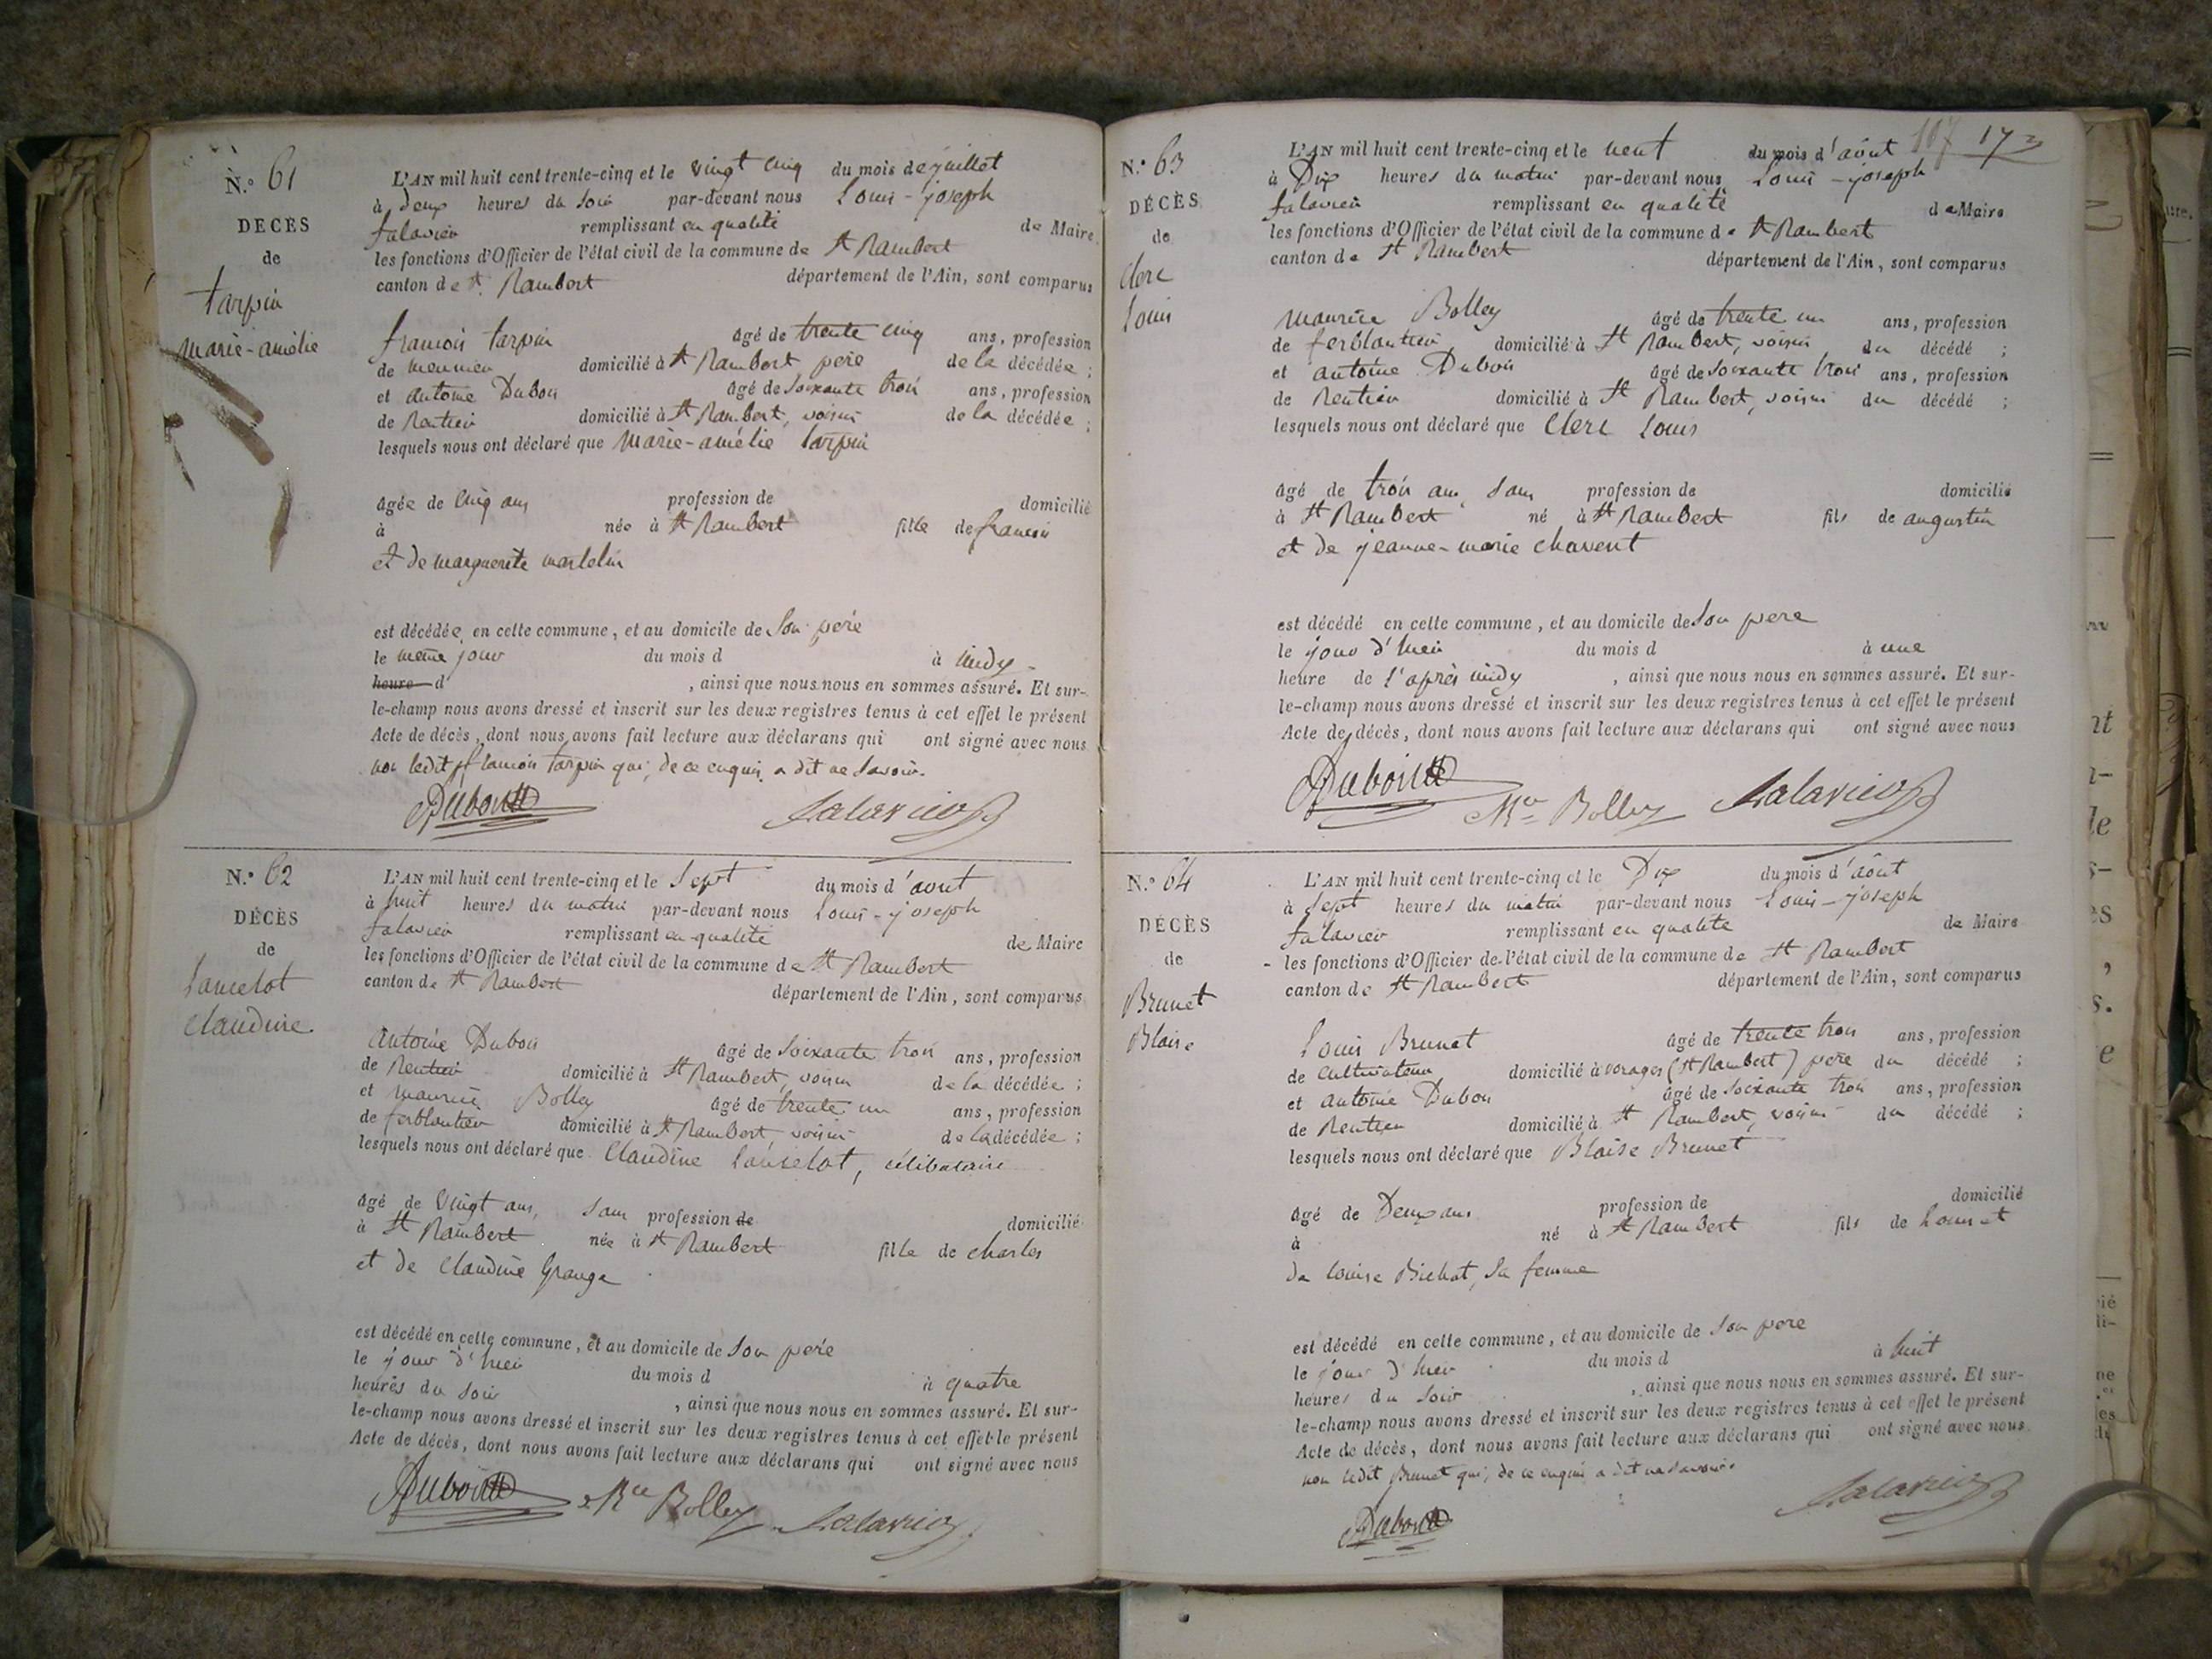 N.° 61
DÉCÈS
de
tarpin
Marie-amélie
L'AN mil huit cent trente-cinq et le vingt cinq du mois de juillet
à deux heures du soir par-devant nous Louis-joseph
falavier remplissant en qualité de Maire
les fonctions d'Officier de l'état civil de la commune de St Rambert
canton de St Rambert département de l'Ain, sont comparus
francois tarpin âgé de trente cinq ans, profession
de meunier domicilié à St Rambert pere de la décédée ;
et antoine Dubois âgé de soixante trois ans, profession
de Rentier domicilié à St Rambert, voisin de la décédée ;
lesquels nous ont déclaré que Marie-amélie tarpin
âgée de cinq ans profession de domicilié
à née à St Rambert fille de francois
et de marguerite
est décédée en cette commune, et au domicile de son pere
le même jour du mois d à midy
heure d , ainsi que nous nous en sommes assuré. Et sur-
le-champ nous avons dressé et inscrit sur les deux registres tenus à cet effet le présent
Acte de décès, dont nous avons fait lecture aux déclarans qui ont signé avec nous
non ledit francois tarpin qui, de ce enquis a dit ne savoir.
Dubois falavier
N.° 62
DÉCÈS
de
Lancelot
Claudine
L'AN mil huit cent trente-cinq et le sept du mois d'aout
à huit heures du matin par-devant nous Louis-joseph
falavier remplissant en qualité de Maire
les fonctions d'Officier de l'état civil de la commune de St Rambert
canton de St Rambert département de l'Ain, sont comparus
Antoine Dubois âgé de soixante trois ans, profession
de Rentier domicilié à St Rambert, voisin de la décédée ;
et maurice Bolley âgé de trente un ans, profession
de ferblantier domicilié à St Rambert, voisin de la décédée ;
lesquels nous ont déclaré que Claudine Lancelot, célibataire
âgé de vingt ans, sans profession de domicilié
à St Rambert née à St Rambert fille de charles
et de Claudine Grange
est décédé en cette commune, et au domicile de son pere
le jour d'hier du mois d à quatre
heures du soir , ainsi que nous nous en sommes assuré. Et sur-
le-champ nous avons dressé et inscrit sur les deux registres tenus à cet effet le présent
Acte de décès, dont nous avons fait lecture aux déclarans qui ont signé avec nous
Dubois Mce Bolley falavier
107 173
N.° 63
DÉCÈS
de
Clerc
Louis
L'AN mil huit cent trente-cinq et le neuf du mois d'août
à Dix heures du matin par-devant nous Louis-joseph
falavier remplissant en qualité de Maire
les fonctions d'Officier de l'état civil de la commune de St Rambert
canton de St Rambert département de l'Ain, sont comparus
maurice Bolley âgé de trente un ans, profession
de ferblantier domicilié à St Rambert, voisin du décédé ;
et antoine Dubois âgé de soixante trois ans, profession
de Rentier domicilié à St Rambert, voisin du décédé ;
lesquels nous ont déclaré que Clerc Louis
âgé de trois ans, sans profession de domicilié
à St Rambert né à St Rambert fils de augustin
et de jeanne-marie chavent
est décédé en cette commune, et au domicile de son pere
le jour d'hier du mois d à une
heure de l'après midy , ainsi que nous nous en sommes assuré. Et sur-
le-champ nous avons dressé et inscrit sur les deux registres tenus à cet effet le présent
Acte de décès, dont nous avons fait lecture aux déclarans qui ont signé avec nous
Dubois Mce Bolley falavier
N.° 64
DÉCÈS
de
Brunet
Blaise
L'AN mil huit cent trente-cinq et le Dix du mois d'août
à sept heures du matin par-devant nous Louis-joseph
falavier remplissant en qualité de Maire
les fonctions d'Officier de l'état civil de la commune de St Rambert
canton de St Rambert département de l'Ain, sont comparus
Louis Brunet âgé de trente trois ans, profession
de cultivateur domicilié à vorages (St Rambert) pere du décédé ;
et antoine Dubois âgé de soixante trois ans, profession
de Rentier domicilié à St Rambert, voisin du décédé ;
lesquels nous ont déclaré que Blaise Brunet
âgé de Deux ans profession de domicilié
à né à St Rambert fils de Louis et
de louise Bichat, sa femme
est décédé en cette commune, et au domicile de son pere
le jour d'hier du mois d à huit
heures du soir , ainsi que nous nous en sommes assuré. Et sur-
le-champ nous avons dressé et inscrit sur les deux registres tenus à cet effet le présent
Acte de décès, dont nous avons fait lecture aux déclarans qui ont signé avec nous
non ledit Brunet qui, de ce enquis a dit ne savoir
Dubois falavier